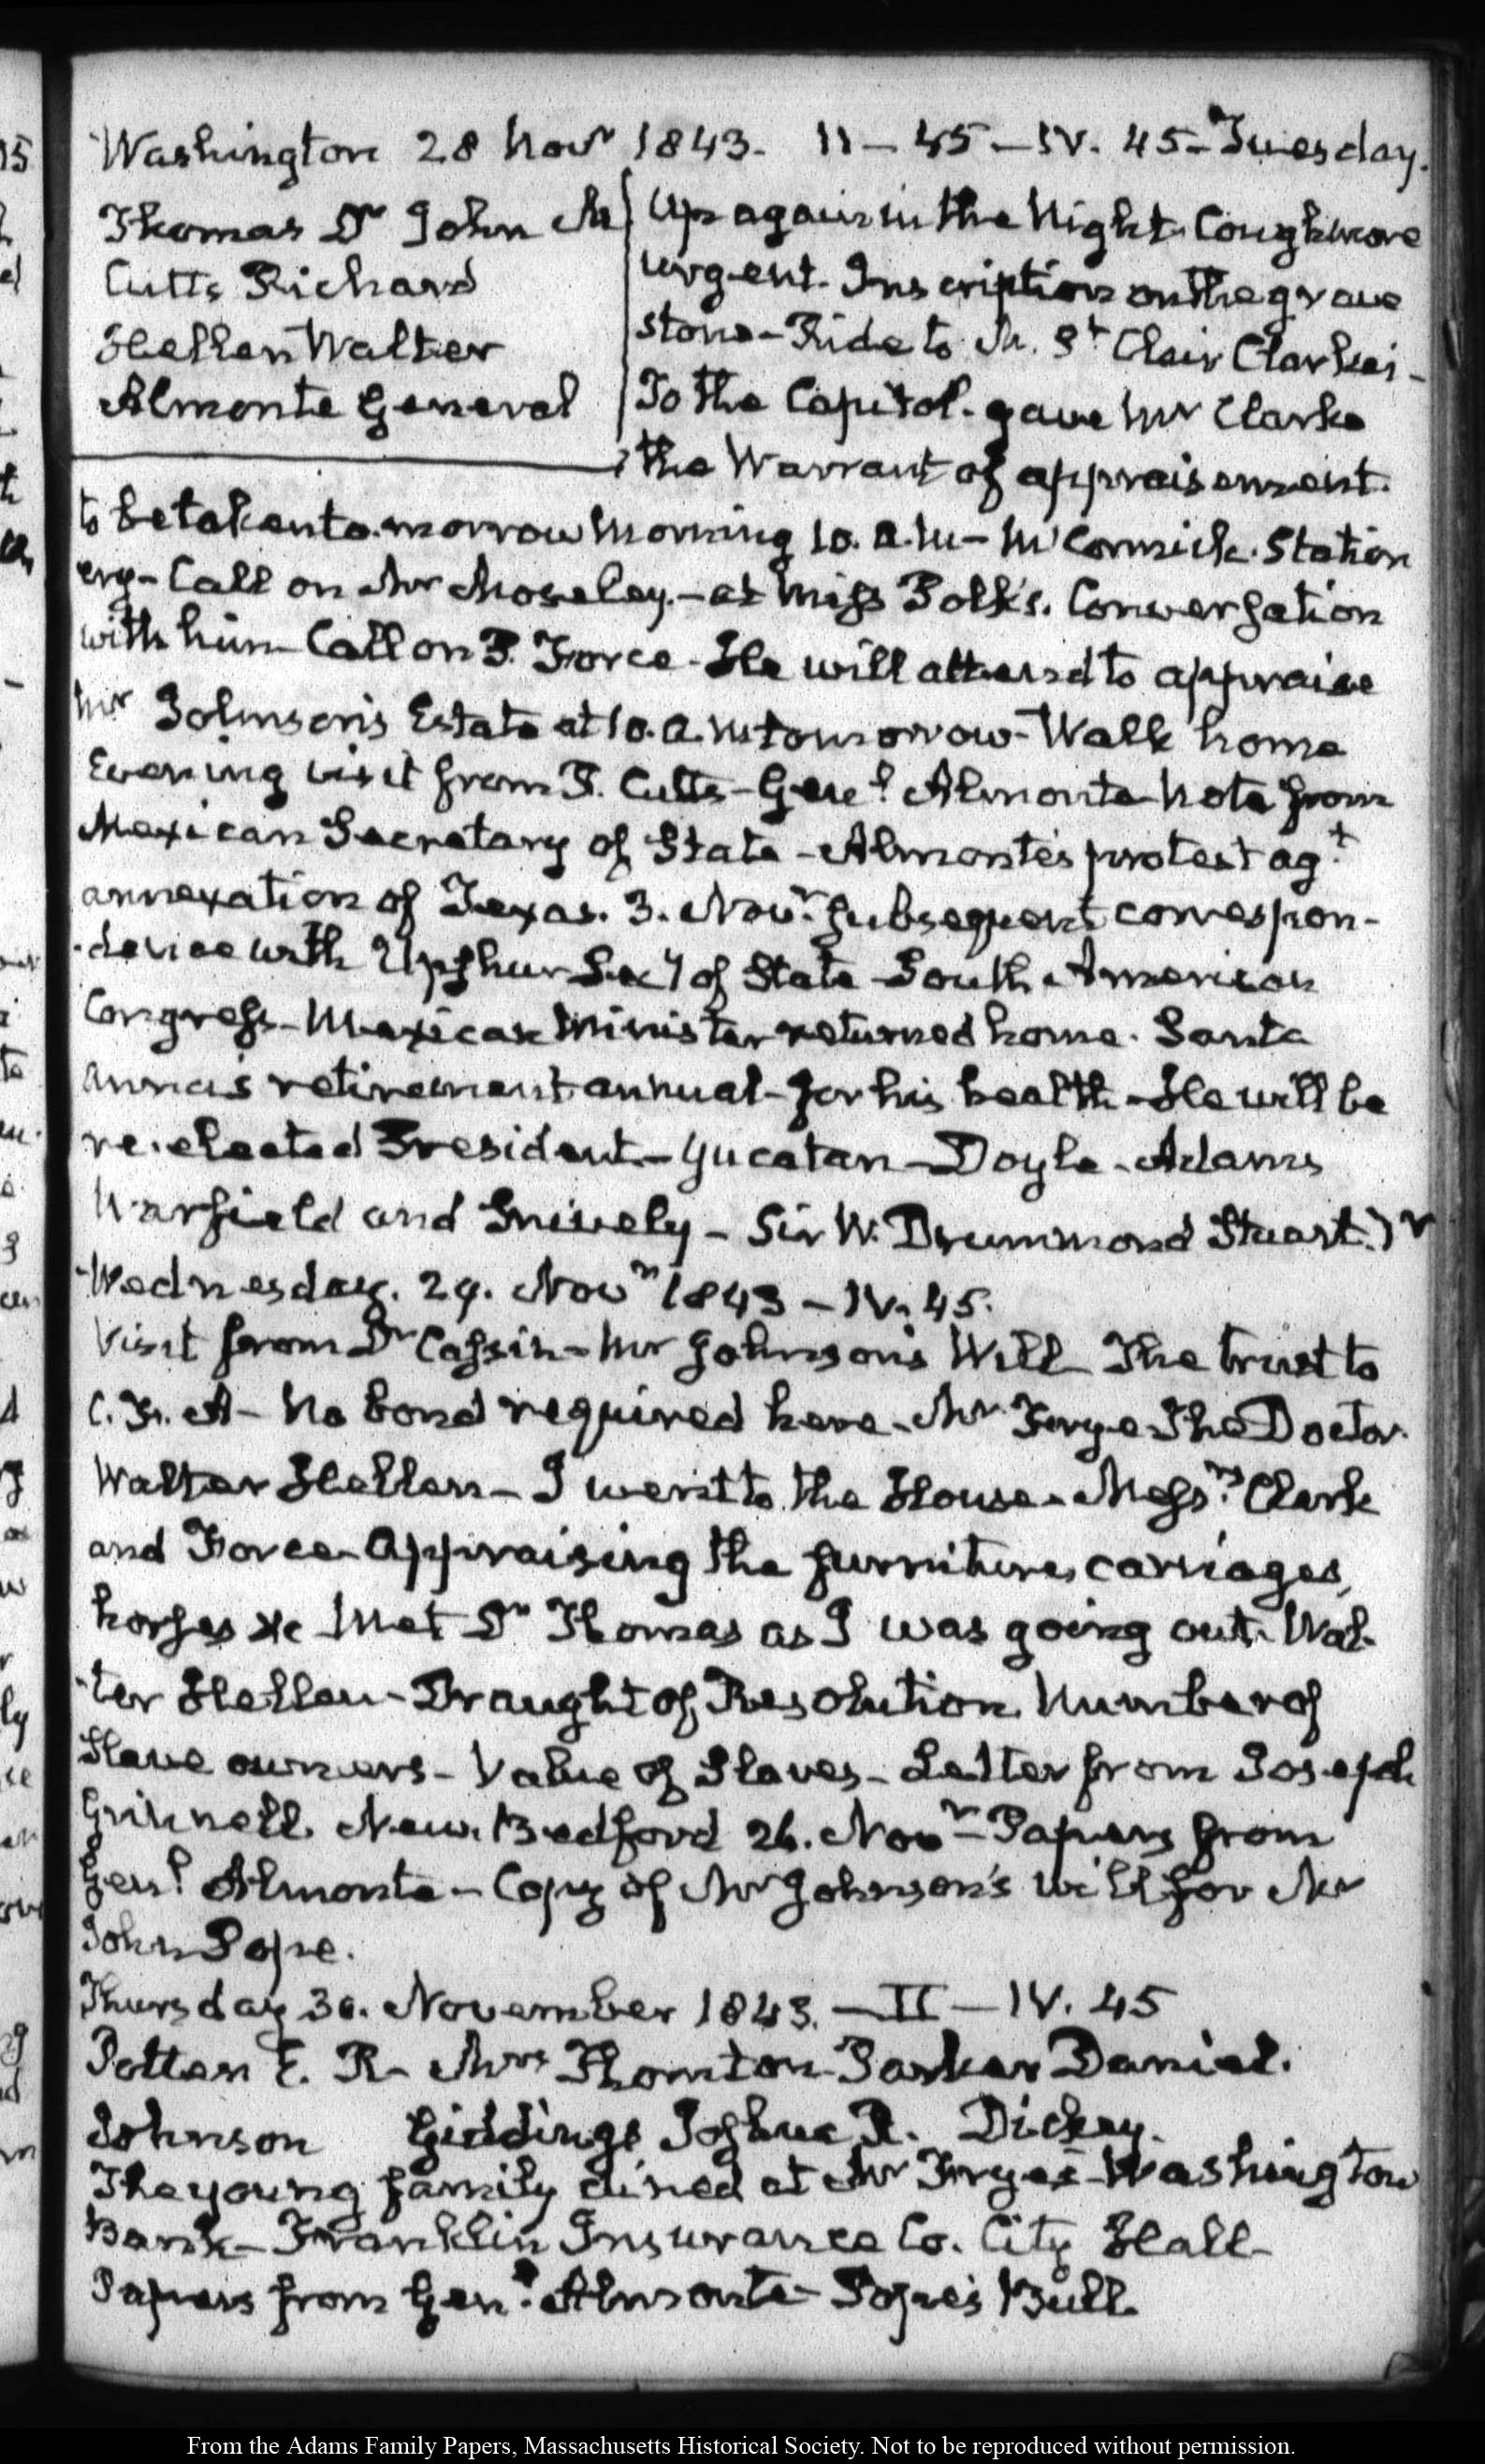 Washington 28 Novr 1843. II - 45 - IV. 45 - Tuesday.
Thomas Dr John M
Cutts Richard
Hellen Walter
Almonte General
Up again in the Night. Cough more
urgent. Inscription on the grave
stone - Ride to M. St Clair Clarke's -
To the Capitol. gave Mr Clarke
the Warrant of appraisement.
to be taken to.morrow Morning 10. a.m - McCormick. Station
ery - Call on Mr Moseley. - at Miss Polk's. Conversation
with him - Call on P. Force - He will attend to appraise
Mr Johnson's Estate at 10. a.m tomorrow - Walk home
Evening visit from R. Cutts - Genl. Almonte Note from
Mexican Secretary of State - Almonte's protest agt.
annexation of Texas. 3. Novr. Subsequent correspon-
-dence with Upshur Secy of State - South American
Congress - Mexican Minister returned home. Santa
Anna's retirement annual - for his health - He will be
re.elected President. - Yucatan - Doyle - Adams
Warfield and Snively - Sir W. Drummond Stuart.
Wednesday. 29. Novr 1843 - IV. 45.
Visit from Dr Cassin - Mr Johnson's Will - The trust to
C. F. A - No bond required here - Mr Frye The Doctor
Walter Hellen - I went to the House - Messrs. Clark
and Force - Appraising the furniture, carriages,
horses &c Met Dr Thomas as I was going out. Wal-
-ter Hellen - Draught of Resolution. Number of
Slave owners - Value of Slaves - Letter from Joseph
Grinnell. New. Bedford 26. Novr - Papers from
Genl. Almonte - Copy of Mr Johnson's will for Mr
John Pope.
Thursday 30. November 1843. - II - IV. 45
Potter E. R - Mrs Thornton - Parker Daniel.
Johnson Giddings Joshua R. Dickey.
The young family dined at Mr Frye's - Washington
Bank - Franklin Insurance Co. City Hall -
Papers from Genl. Almonte - Pope's Bull.
From the Adams Family Papers, Massachusetts Historical Society. Not to be reproduced without permission.